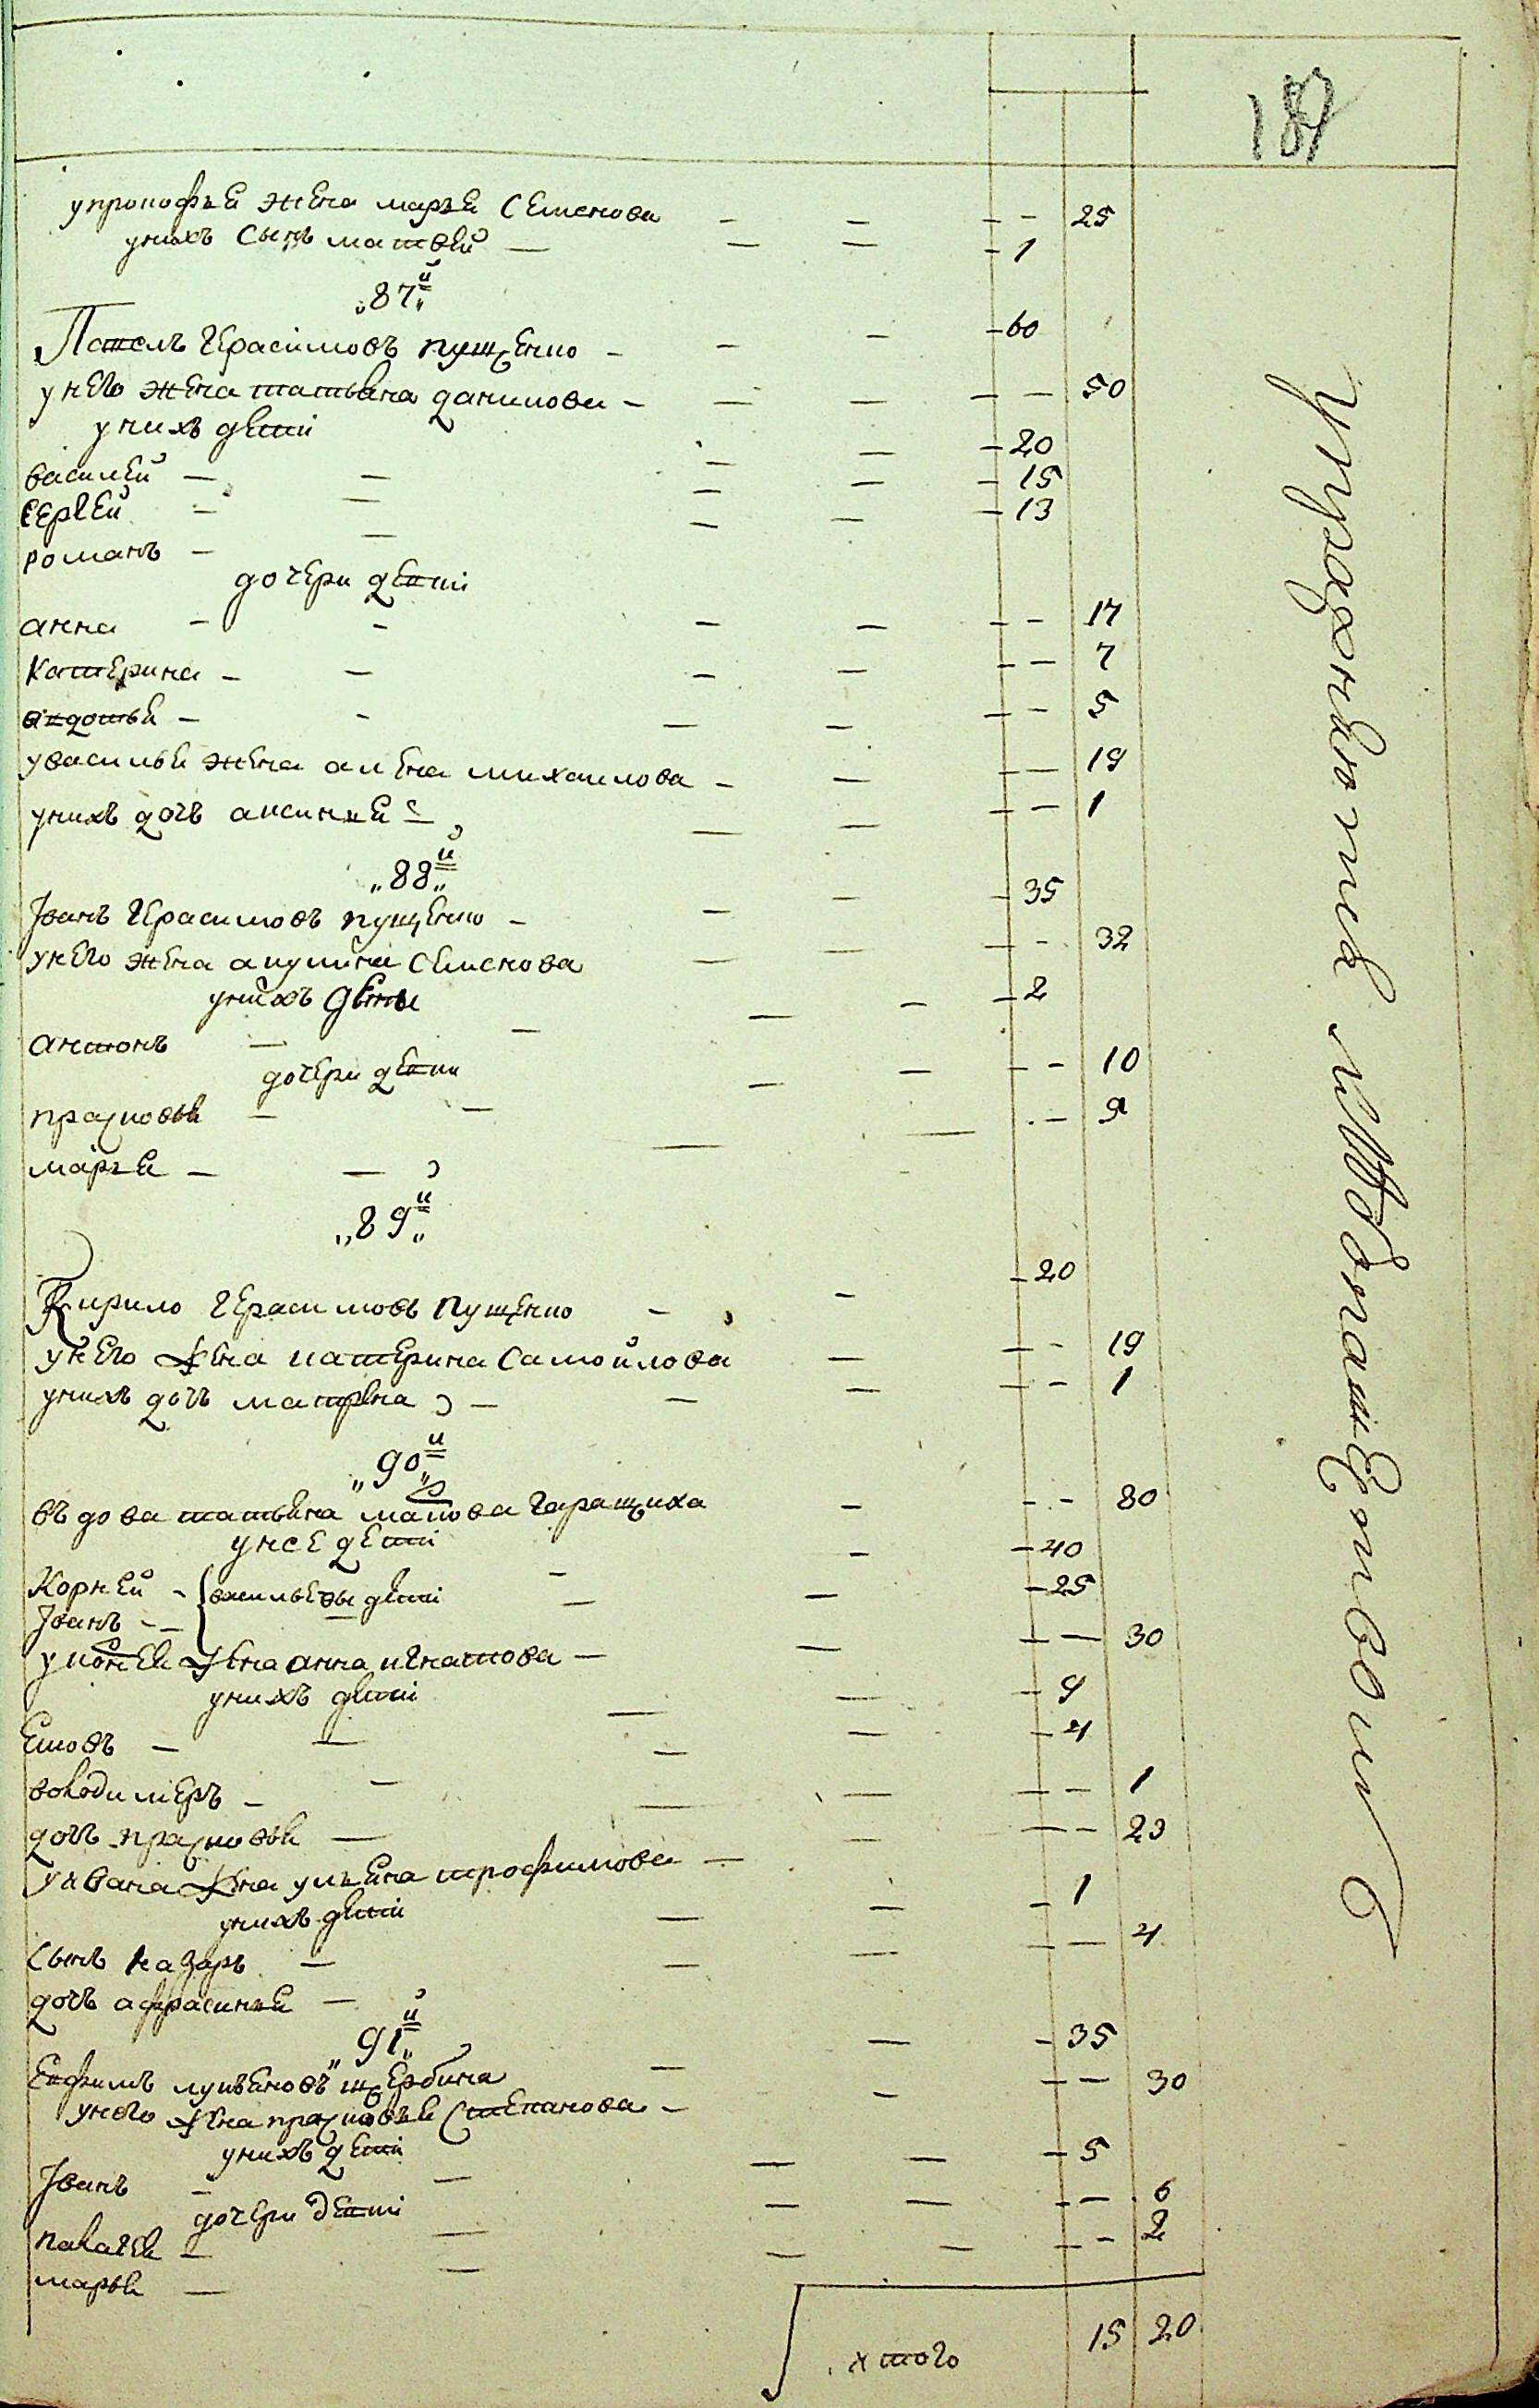 187
упрокофья жена марья Семенова — — — — 25
унихъ сынъ матвей — — — — 1
„87й„
Павелъ Герасимовъ пущенко — — — — 60
унего жена татьяна данилова — — — — — 50
унихъ дети
василей — — — — — 20
сергей — — — — — 15
романъ — — — — — 13
дочери дети
анна — — — — — — 17
катерина — — — — — — 7
авдотья — — — — — — 5
увасилья жена алена михаилова — — — — 19
унихъ дочь аксинья — — — — — 1
„88й„
Іванъ Герасимовъ пущенко — — — — 35
унего жена акулина Семенова — — — — 32
унихъ дети
антонъ — — — — — 2
дочери дети
прасковья — — — — — — 10
марья — — — — — 9
„89й„
Кирило Герасимовъ пущенко — — — 20
унего жена катерина Самойлова — — — 19
унихъ дочь матрена — — — — — 1
„90й„
въдова татьяна Гаращиха — — — 80
унее дети
Корней — — — — 40
Іванъ — — — — — 25
васильевы дети
укорнея жена анна игнатова — — — — 30
унихъ дети
— — — — — 9
володимеръ — — — — — 4
дочь прасковья — — — — — 1
уивана жена ульяна трофимова — — — — 23
унихъ дети
сынъ назаръ — — — — 1
дочь афрасинья — — — — — 4
„91й„
Ефимъ лукьяновъ щербина — — — 35
унего жена прасковья Степанова — — — — 30
унихъ дети
Іванъ — — — — — 5
дочери дети
палагея — — — — — — 6
марья — — — — — — 2
итого 15 20
упражняютса хлебопашествомъ